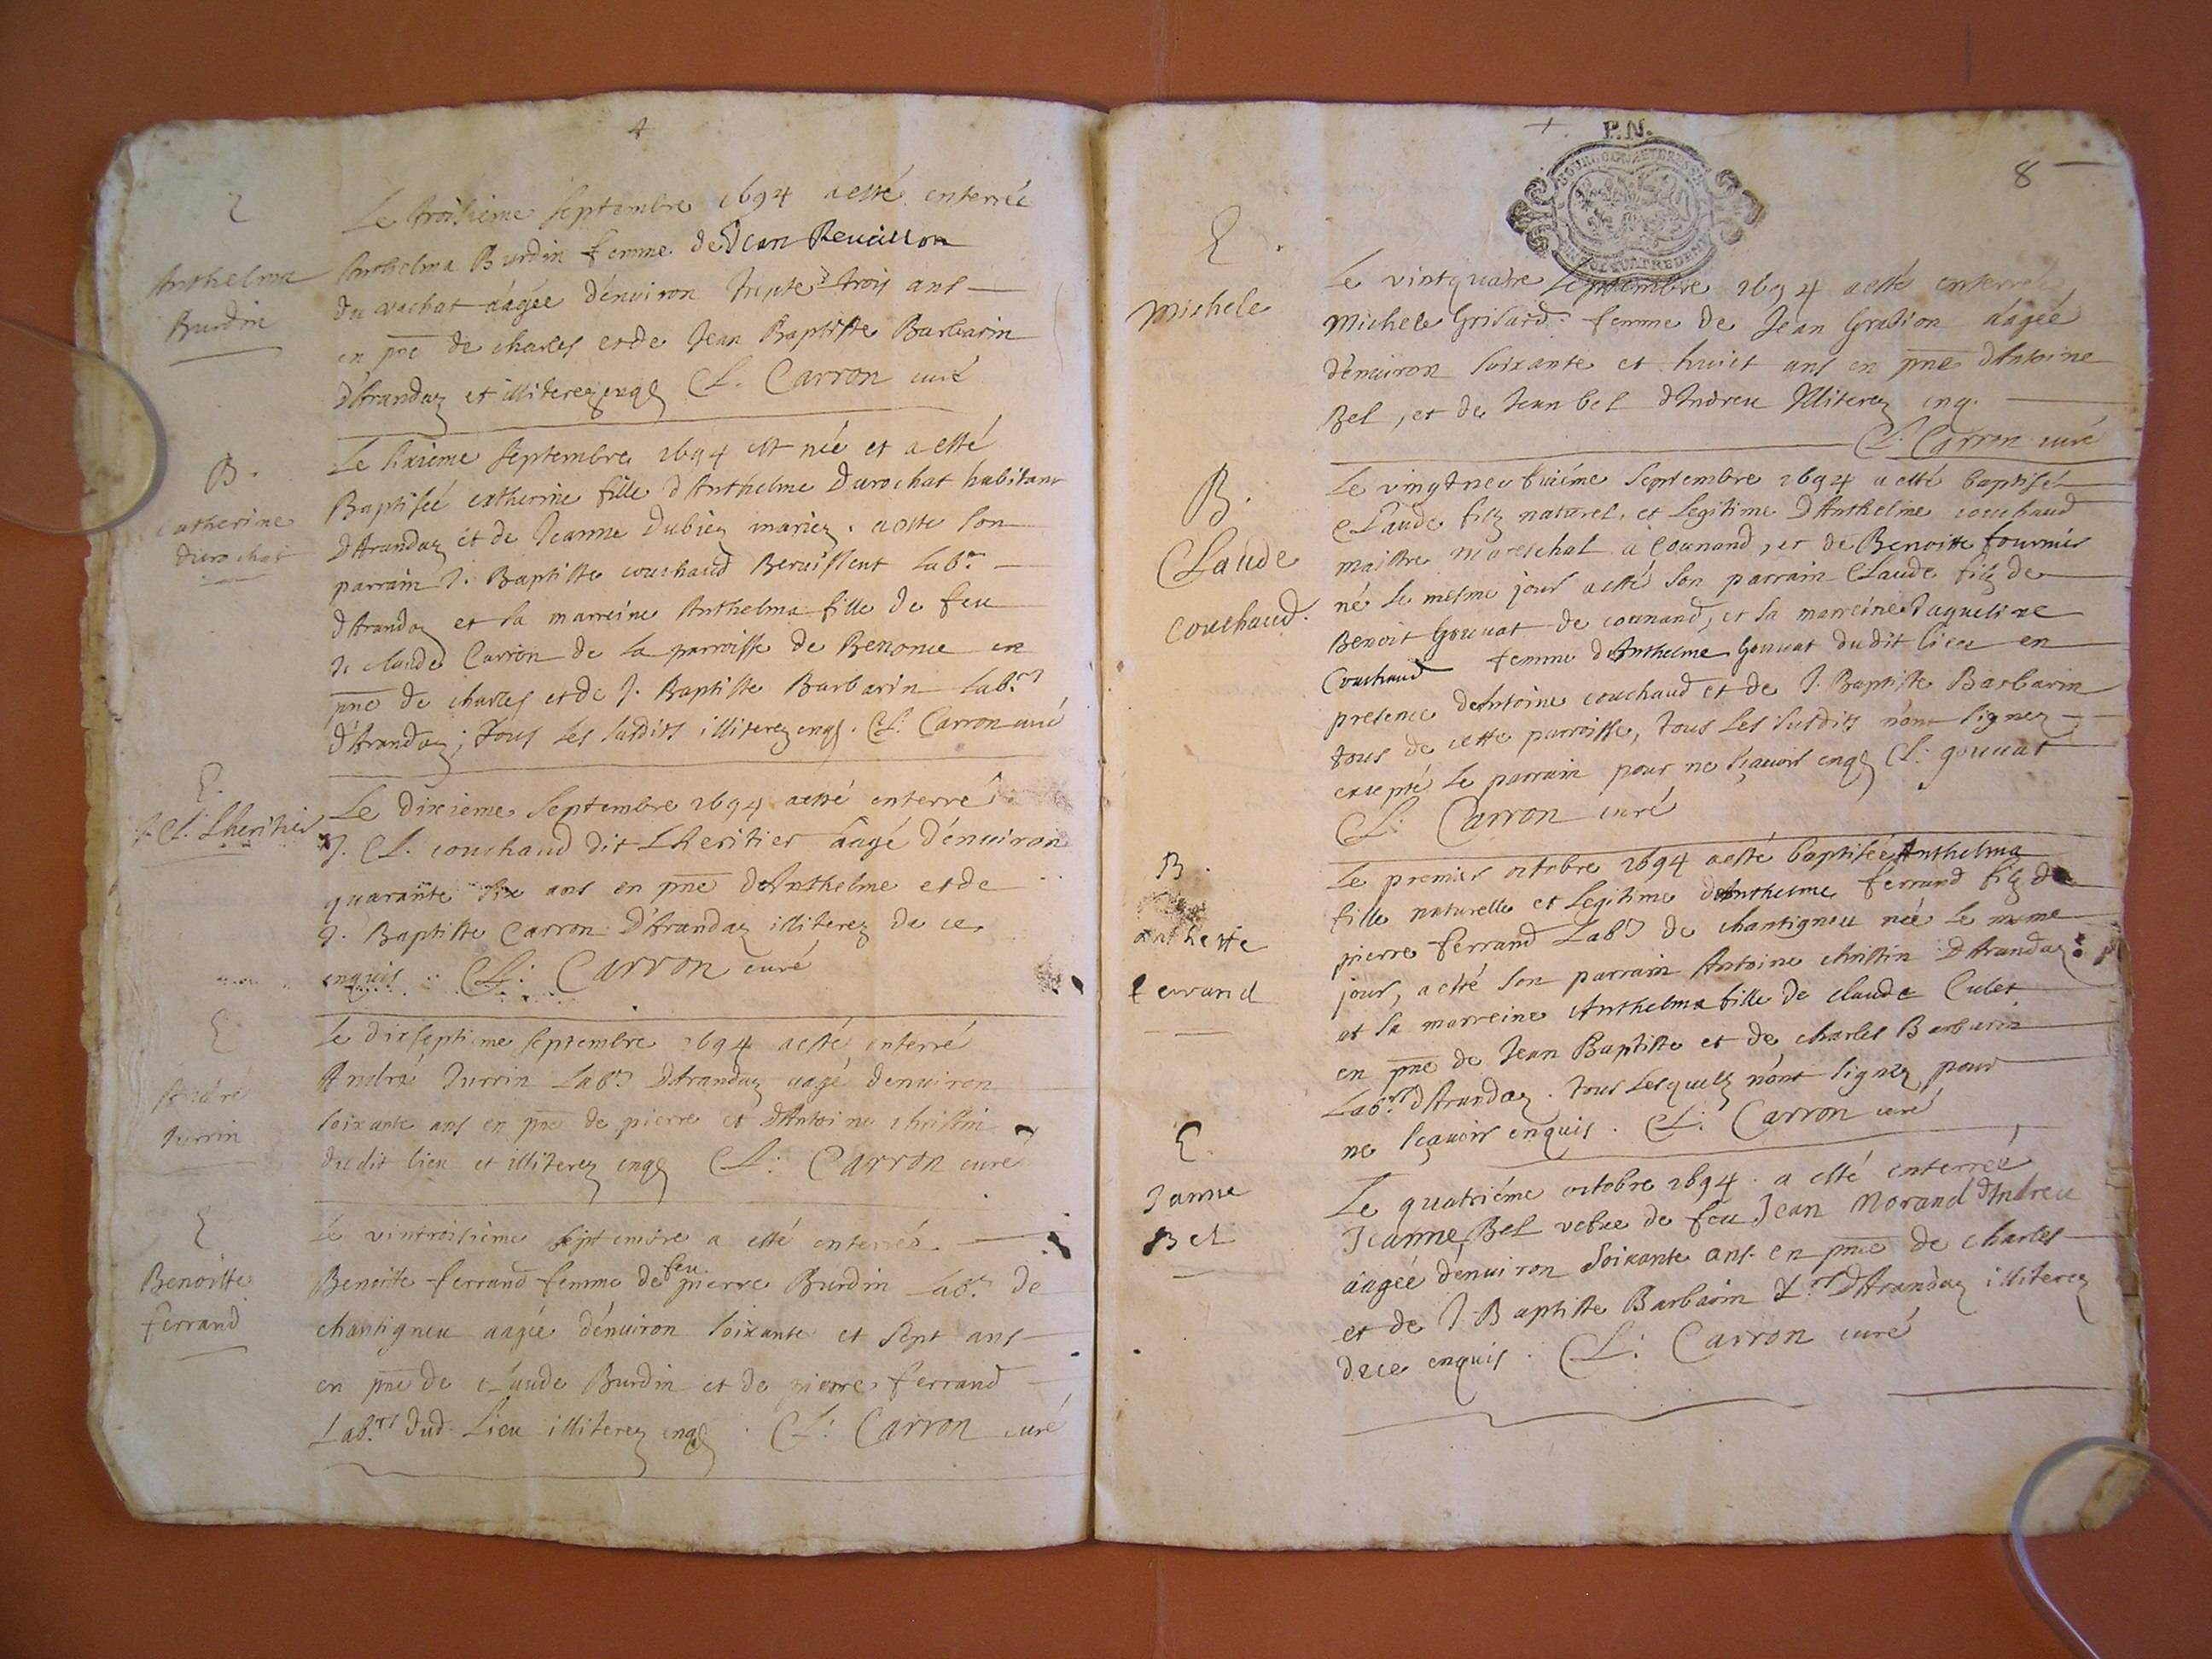 4
E
Anthelma
Burdin
Le troisieme septembre 1694 a esté enterrée
Anthelma Burdin femme de Jean Reuaillon
du vachat aágée d'enuiron trente trois ans
en pñce de charles et de Jean Baptiste Barbarin
d'Arandaz et illiterez enqs Cl. Carron curé
B.
Catherine
Durochat
Le sixieme septembre 1694 est née et a esté
Baptiseé catherine fille d'Anthelme Durochat habitant
d'Arandaz et de Jeanne Dubiez mariez. a este son
parrain J. Baptiste couchaud labr
d'Arandaz et sa marreine Anthelma fille de feu
J. claude Carron de la parroisse de Benonce en
pñce de charles et de J. Baptiste Barbarin labrs
d'Arandaz; tous les susdits illiterez enqs. Cl. Carron curé
E.
J. Cl. Lheritier
Le dixieme septembre 1694 a esté enterré
J. Cl. couchaud dit LHeritier aagé d'enuiron
quarante six ans en pñce d'Anthelme et de
J. Baptiste Carron D'Arandaz illiterez de ce
enquis. Cl: Carron curé
E
André
Jurrin
Le dixseptieme septembre 1694 a esté enterré
André Jurrin Labr D'Arandaz aagé denuiron
soixante ans en pñce de pierre et d'Antoine christin
dudit lieu et illiterez enqs Cl: Carron curé
E
Benoitte
ferrand
Le vintroisieme septembre a esté enterreé
Benoitte ferrand femme de feu pierre Burdin Labr de
chantigneu aagée d'enuiron soixante et sept ans
en pñce de claude Burdin et de pierre ferrand
Labrs dud. Lieu illiterez enqs. Cl: Carron curé
P.N.
8
E.
Michele
Le vintquatre septembre 1694 a esté enterreé
Michele Grisard femme de Jean Gration aágeé
d'enuiron soixante et huict ans en pñce d'Antoine
Bel, et de Jean bel d'Indreu Illiterez enq.
Cl. Carron curé
B.
Claude
Couchaud.
Le vingtneufuiéme septembre 1694 a esté baptisé
Claude filz naturel, et Legitime D'Anthelme couchaud
maistre mareschal a Counand, et de Benoitte fournier
né le mesme jour a esté son parrain Claude filz de
Benoit Gouuat de counand, et sa marreine Jaqueline
Couchaud femme d'Anthelme Gouuat dudit lieu en
presence d'Antoine couchaud et de J. Baptiste Barbarin
tous de cette parroisse, tous les susdits n'ont signez
excepté le parrain pour ne sçauoir enqs Cl. gouuat
Cl: Carron curé
B.
anthelme
ferrand
Le premier octobre 1694 a esté baptiseé Anthelma
fille naturelle et Legitime d'Anthelme ferrand filz de
pierre ferrand Labr de chantigneu neé le mesme
jour, a esté son parrain Antoine christin D'Arandaz
et sa marreine Anthelma fille de claude Culet
en pñce de Jean Baptiste et de charles Barbarin
Labrs d'Arandaz. tous lesquelz n'ont signez pour
ne sçauoir enquis. Cl: Carron curé
E.
Janne
Bel
Le quatriéme octobre 1694. a esté enterreé
Jeanne Bel vefue de feu Jean Morand d'Indreu
aágeé denuiron soixante ans. en pñce de charles
et de J. Baptiste Barbarin Lrs D'Arandaz illiterez
de ce enquis. Cl: Carron curé